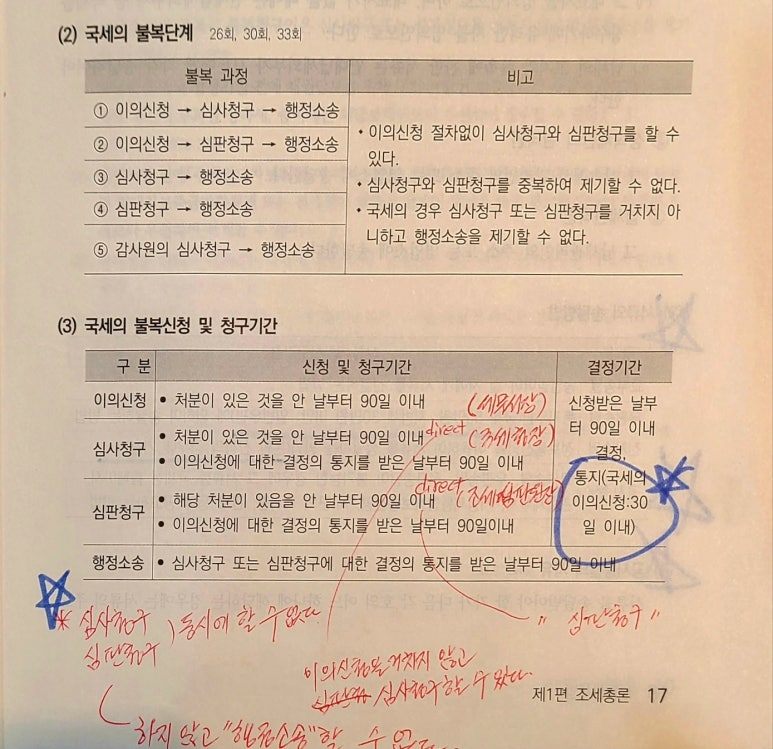 (2) 국세의 불복단계 26회, 30회, 33회
불복 과정 비고
① 이의신청 → 심사청구 → 행정소송
② 이의신청 → 심판청구 → 행정소송
③ 심사청구 → 행정소송
④ 심판청구 → 행정소송
⑤ 감사원의 심사청구 → 행정소송
• 이의신청 절차없이 심사청구와 심판청구를 할 수
있다.
• 심사청구와 심판청구를 중복하여 제기할 수 없다.
• 국세의 경우 심사청구 또는 심판청구를 거치지 아
니하고 행정소송을 제기할 수 없다.
(3) 국세의 불복신청 및 청구기간
구 분 신청 및 청구기간 결정기간
이의신청 • 처분이 있은 것을 안 날부터 90일 이내 (세무서장)
심사청구
• 처분이 있은 것을 안 날부터 90일 이내 direct (국세청장)
• 이의신청에 대한 결정의 통지를 받은 날부터 90일 이내
심판청구
• 해당 처분이 있음을 안 날부터 90일 이내 direct (조세심판원장)
• 이의신청에 대한 결정의 통지를 받은 날부터 90일이내
신청받은 날부
터 90일 이내
결정,
통지(국세의
이의신청:30
일 이내)
행정소송 • 심사청구 또는 심판청구에 대한 결정의 통지를 받은 날부터 90일 이내
* 심사청구
심판청구 ) 동시에 할 수 없다.
" 심판청구 "
이의신청을 거치지 않고
심사청구 할 수 있다.
하지 않고 "행정소송"할 수 없다.
제1편 조세총론 17